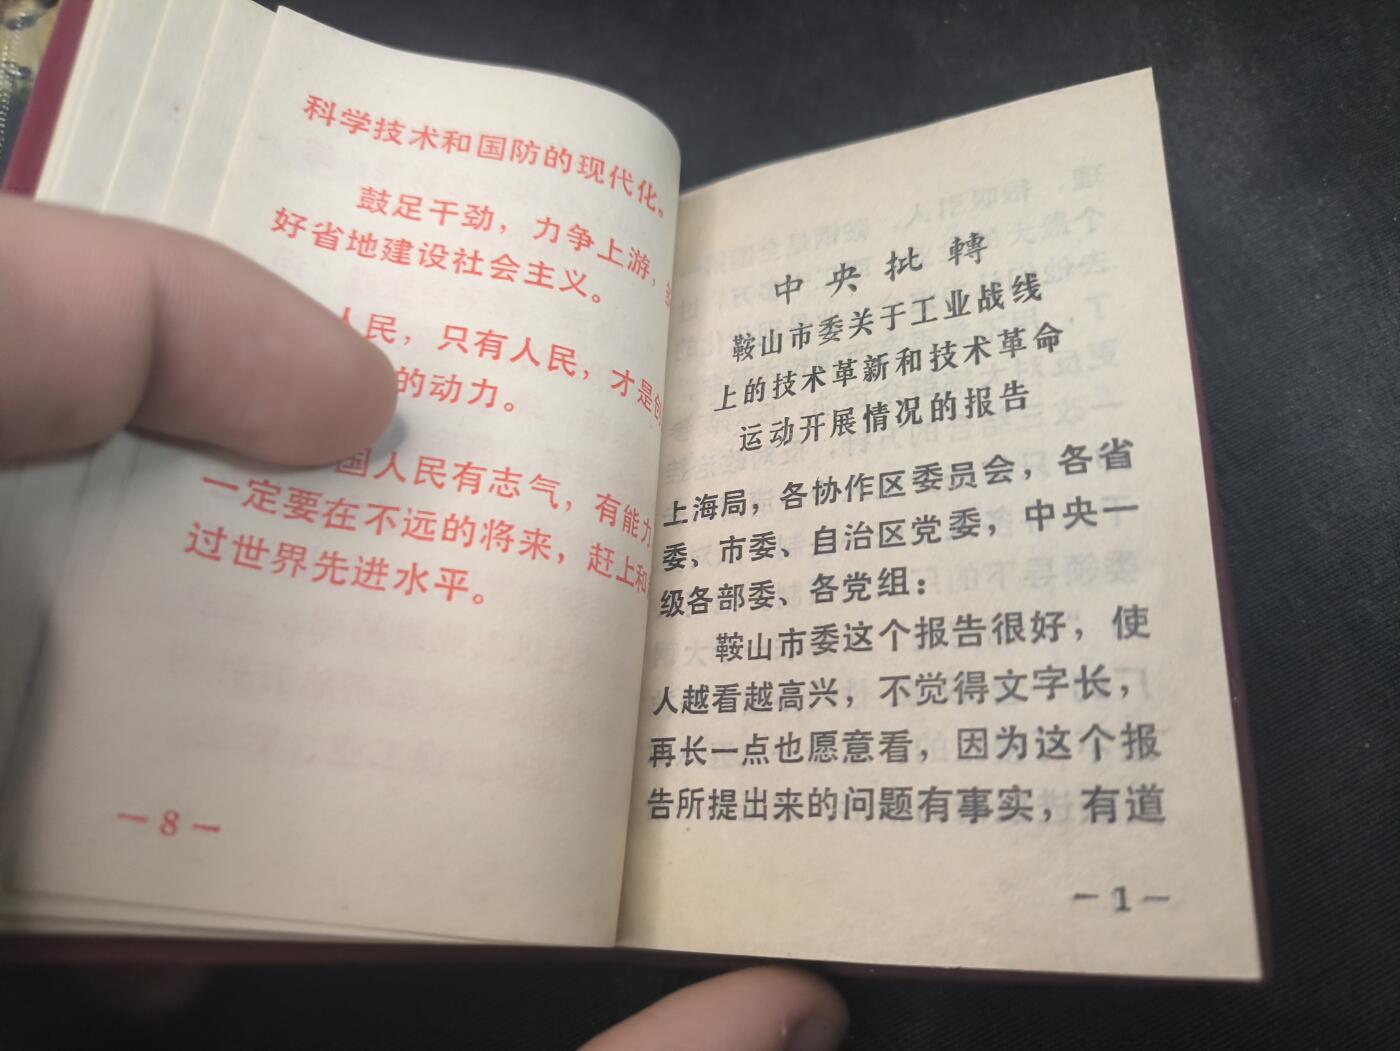 科学技术和国防的现代化。
鼓足干劲，力争上游，
好省地建设社会主义。
人民，只有人民，才是创
的动力。
国人民有志气，有能力
一定要在不远的将来，赶上和
过世界先进水平。
—8—
中央批轉
鞍山市委关于工业战线
上的技术革新和技术革命
运动开展情况的报告
上海局，各协作区委员会，各省
委、市委、自治区党委，中央一
级各部委、各党组：
鞍山市委这个报告很好，使
人越看越高兴，不觉得文字长，
再长一点也愿意看，因为这个报
告所提出来的问题有事实，有道
—1—